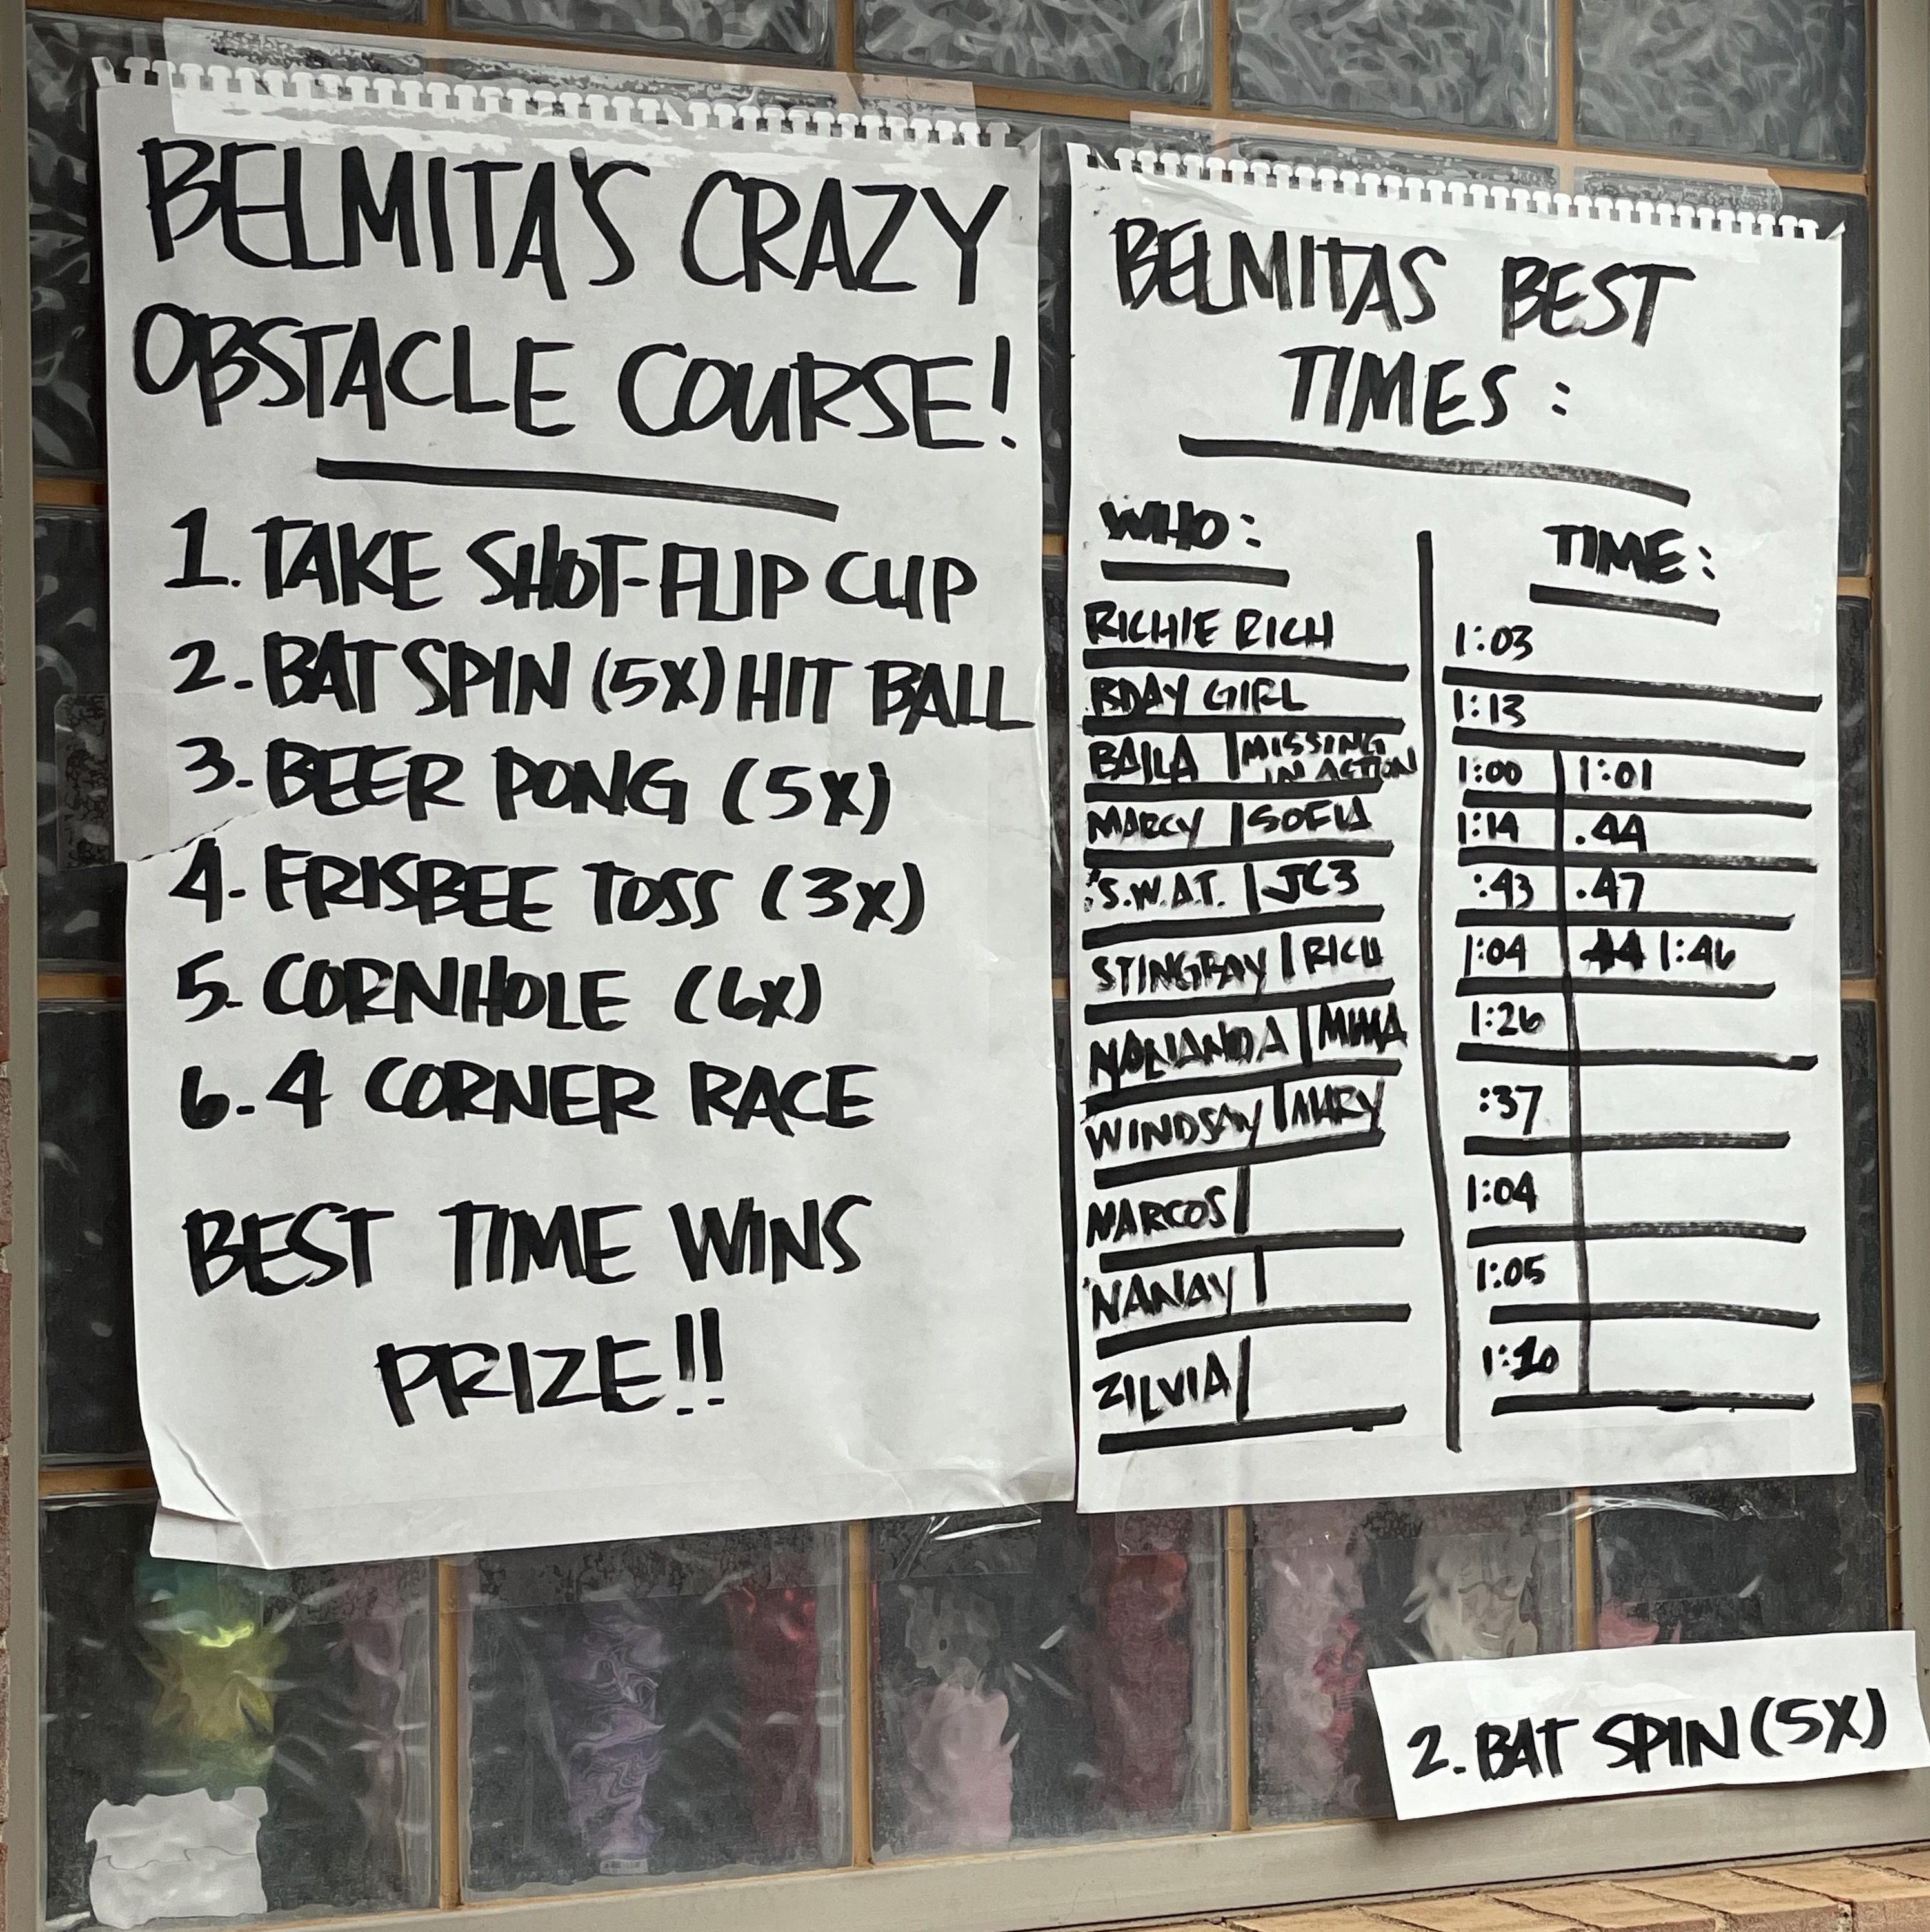 BELMITA'S CRAZY
OBSTACLE COURSE!
1. TAKE SHOT-FLIP CUP
2. BAT SPIN (5X) HIT BALL
3. BEER PONG (5X)
4. FRISBEE TOSS (3X)
5. CORNHOLE (6X)
6. 4 CORNER RACE
BEST TIME WINS
PRIZE!!
BELMITAS BEST
TIMES:
WHO: TIME:
RICHIE RICH 1:03
BDAY GIRL 1:13
BAILA | MISSING IN ACTION 1:00 | 1:01
MARCY | SOFIA 1:14 | .44
S.W.A.T. | JC3 :43 | .47
STINGRAY | RICH 1:04 | 1:46
| MIMA 1:26
WINDSAY | :37
NARCOS | 1:04
NANAY | 1:05
ZILVIA | 
2. BAT SPIN (5X)